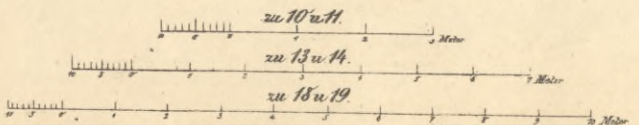 zu 10 u 11.
10 5 0 1 2 3 Meter
zu 13 u 14.
10 5 0 1 2 3 4 5 6 7 Meter
zu 18 u 19.
10 5 0 1 2 3 4 5 6 7 8 9 10 Meter